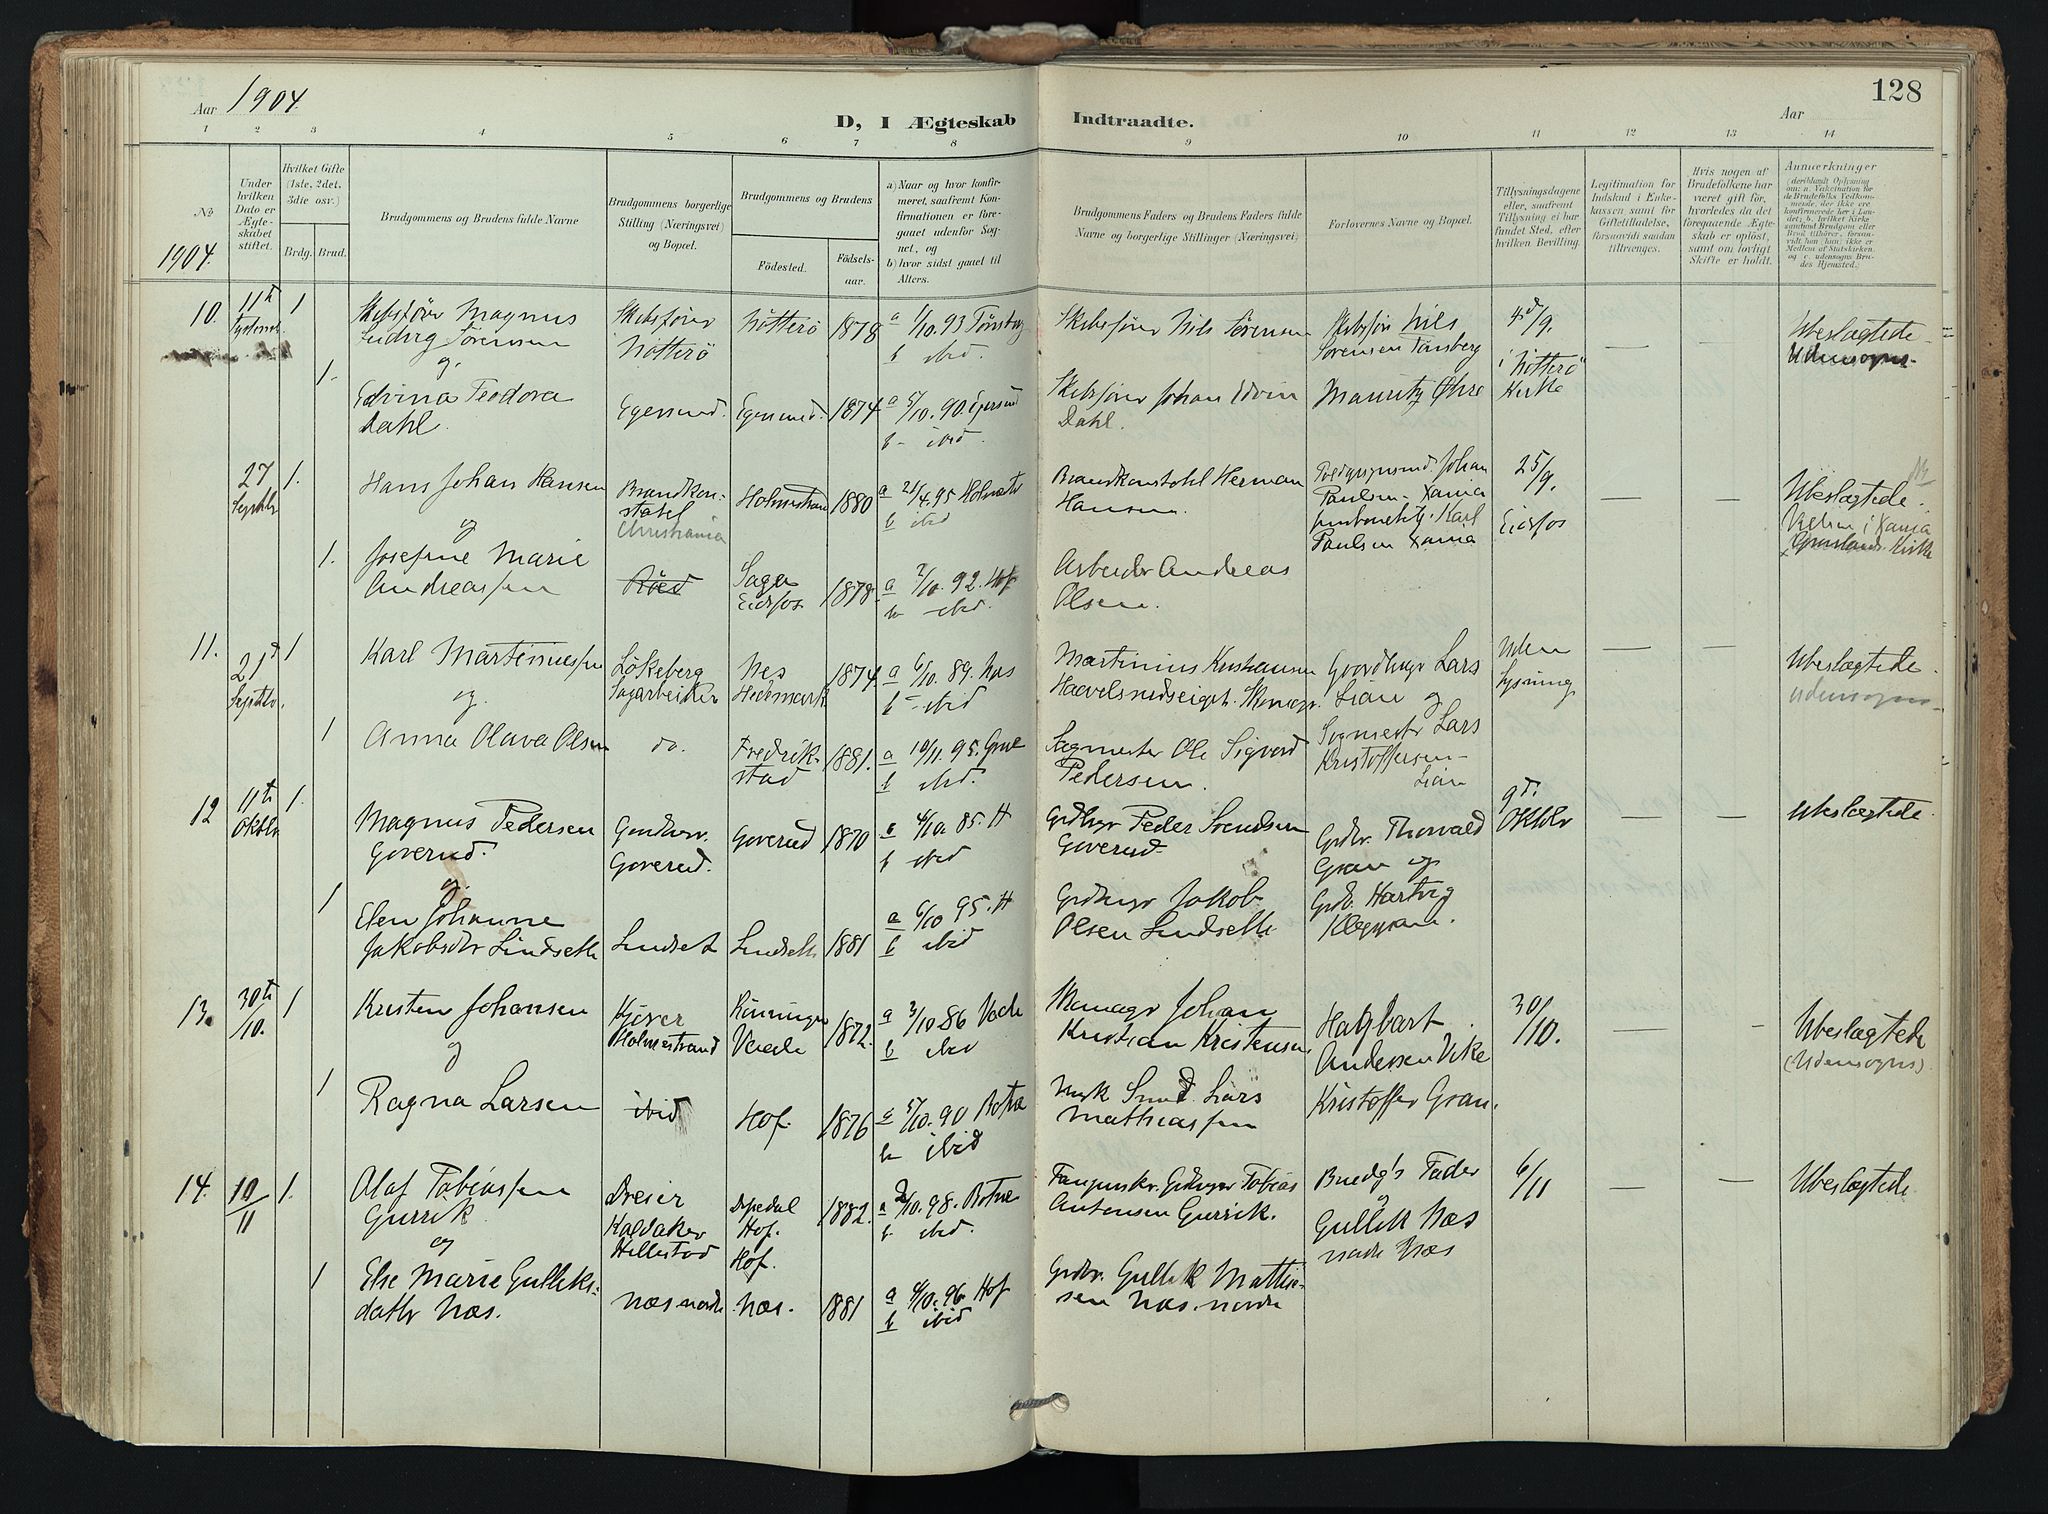 Aar 1904.
128
Aar
D, I Ægteskab Indtraadte.
1 2 3 4 5 6 7 8 9 10 11 12 13 14
No
1904.
Under hvilken Dato er Ægteskabet stiftet.
Hvilket Gifte (1ste, 2det, 3die osv.)
Brdg. Brud.
Brudgommens og Brudens fulde Navne
Brudgommens borgerlige Stilling (Næringsvei) og Bopæl.
Brudgommens og Brudens
Födested.
Födselsaar.
a) Naar og hvor konfirmeret, saafremt Konfirmationen er foregaaet udenfor Sognet, og
b) hvor sidst gaaet til Alters.
Brudgommens Faders og Brudens Faders fulde Navne og borgerlige Stillinger (Næringsvei)
Forlovernes Navne og Bopæl.
Tillysningsdagene eller, saafremt Tillysning ei har fundet Sted, efter hvilken Bevilling.
Legitimation for Indskud i Enkekassen samt for Giftetilladelse, forsaavidt saadan tiltrænges.
Hvis nogen af Brudefolkene har været gift for, hvorledes da det foregaaende Ægteskab er oplöst, samt om lovligt Skifte er holdt.
Anmerkninger
10. 11te 1
Skibsförer Magnus
Ludvig Sörensen
og
Skibsförer
Nötterö
Nötterö
1878
a 1/10. 93 Tönsberg
b ibid.
Skibsförer Nils Sörensen
Skibsför Nils
Sörensen Tönsberg
4d/9.
i Nötterö
Kirke
Ubeslægtede
Udensogns.
1.
Edvina Teodora
Dahl.
Egersund.
Egersund.
1874.
a 5/10. 90. Egersund
b – ibid.
Skibsförer Johan Edvin
Dahl.
Mauritz Öhre
27 Septbr 1.
Hans Johan Hansen
og
Brandkonstabel
Christiania
Holmestrand
1880
a 21/4. 95 Holmestr
b ibid
Brandkonstabl Herman
Hansen.
Johan
Paulsen Xania
Karl
Paulsen Xania
25/9.
Eidsfos
Ubeslægtede.
Vielsen i Xania
Grönlands Kirke
1.
Josefine Marie
Andreassen
Röed
Sagen
Eidsfos
1878.
a 2/10. 92. Hof
b – ibid.
Arbeider Andreas
Olsen.
11. 21d Septbr. 1
Karl Martinussen
og.
Lökeberg
Sagarbeider
Nes
Hedemark
1874.
a 6/10. 89. Nes
b – ibid
Martinius Kristiansen
Gaardbruger Lars
Lian og
Sagmester Lars
Kristoffersen
Lian
Uden
Lysning
Ubeslægtede.
Udensogns
1
Anna Olava Olsen
do.
Fredrikstad
1881.
a 10/11. 95.
b ibid.
Sagmester Ole Sigvard
Pedersen.
12 11te Oktbr 1.
Magnus Pedersen
Goverud.
og.
Gaardbrugr.
Goverud.
Goverud
1870
a 4/10. 85. H
b ibid
Grdbrgr Peder Svendsen
Goverud.
Grdbr. Thorvald
Gran og
Grdb. Hartvig
9d.
Oktobr
Ubeslægtede.
1
Elen Johanne
Jakobsdtr Lindseth
Lindset
Lindseth
1881
a 6/10 95. H
b ibid
Grdbrgr Jakob
Olsen Lindseth
13. 30te/10. 1
Kristen Johansen
og
Kjörer
Holmestrand
Vaale
1872.
a 3/10 86 Vaale
b ibid
Skomagr Johan
Kristian Kristensen
Hagbart
Andersen Vike
Kristoffer Gran.
30/10.
Ubeslægtede
(Udensogns)
1
Ragna Larsen
ibid
Hof.
1876
a 5/10. 90 Botne
b ibid
Lars
Mathiassen
14. 10/11 1.
Olaf Tobiassen
Gurrik
og
Dreier
Haldaker
Hillestad
Hof.
1882.
a 2/10. 98. Botne
b ibid.
Tobias
Antonsen Gurrik.
Brudg's Fader
og
Gullik Næs
nordre Næs
6/11
Ubeslægtede
1
Else Marie Gulliksdatter
Næs.
Næs nordre
Hof.
Næs.
1881
a 4/10. 96. Hof
b ibid
Grdbr. Gullik Mattisen
Næs nordre